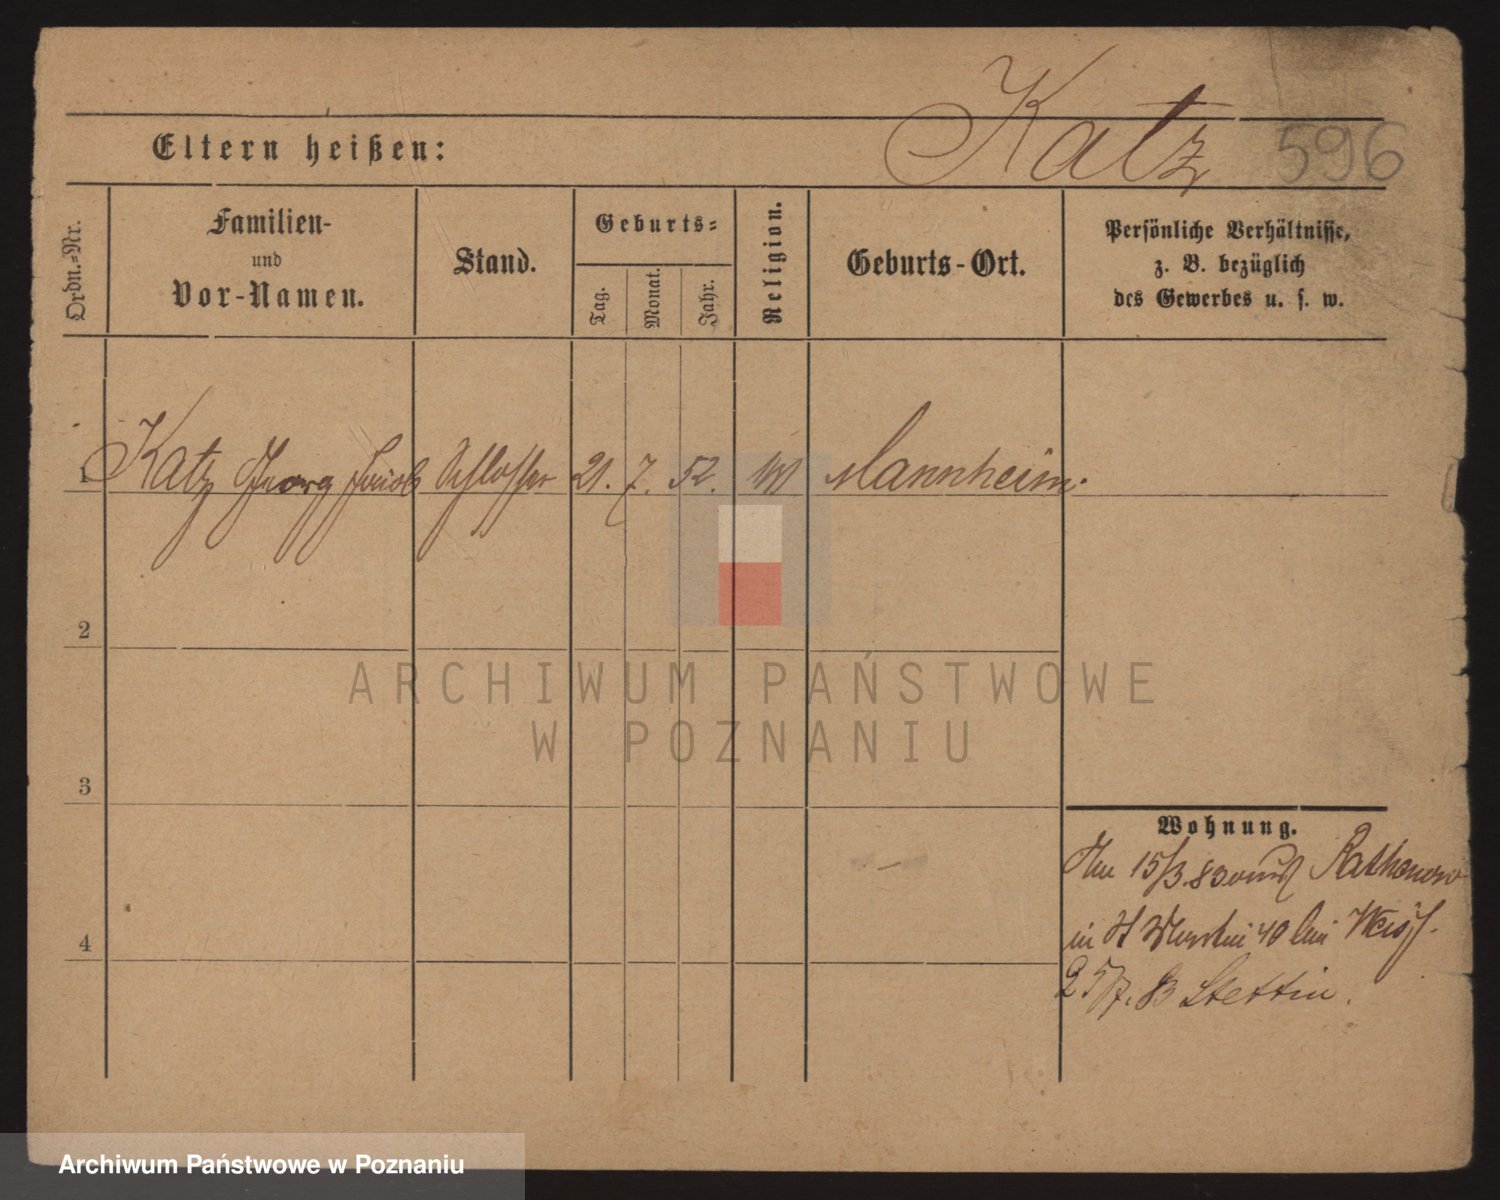 Katz 596
Eltern heißen:
Ordn.=Nr.
Familien-
und
Vor-Namen.
Stand.
Geburts=
Tag.
Monat.
Jahr.
Religion.
Geburts-Ort.
Persönliche Verhältnisse,
z. B. bezüglich
des Gewerbes u. s. w.
1 Katz Georg Jacob Schlosser 21. 7. 52. Mannheim.
2
ARCHIWUM PAŃSTWOWE
W POZNANIU
3
Wohnung.
15/3. 83 Rathenow
in St Martin 40 bei Weiss.
25/7. 83 Stettin.
4
Archiwum Państwowe w Poznaniu